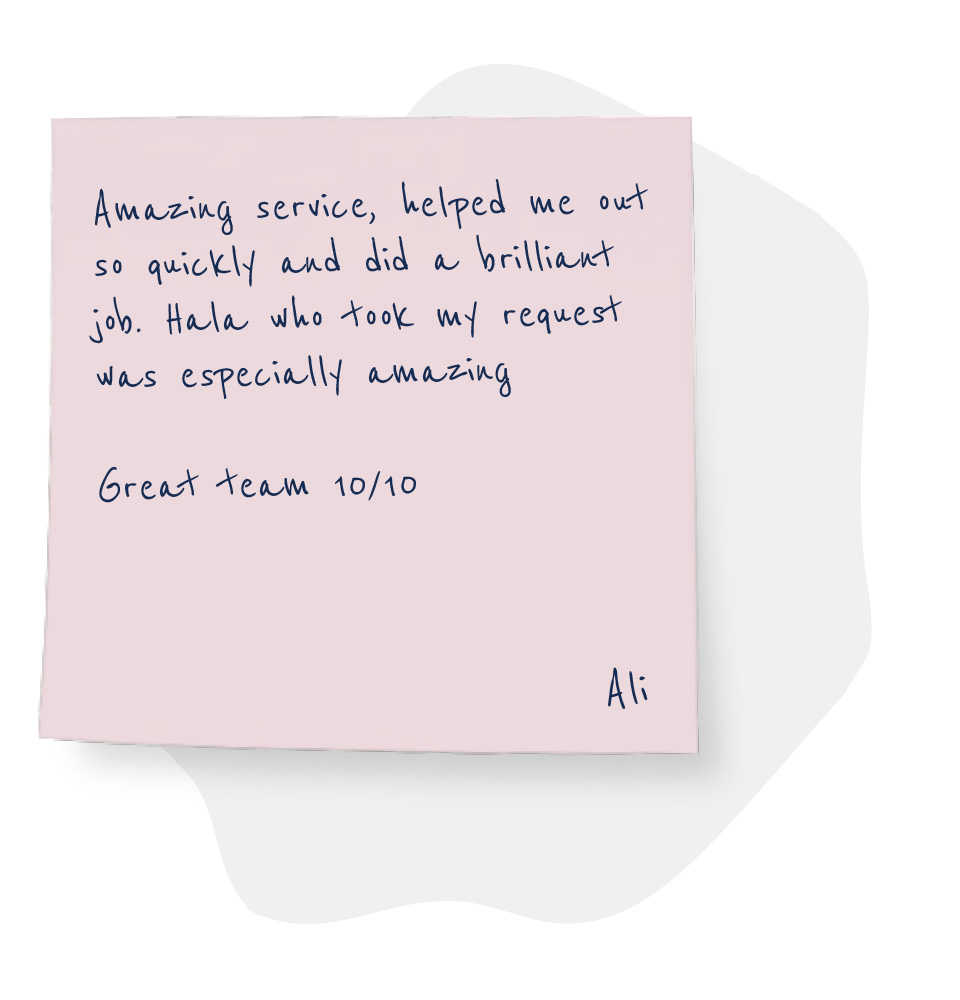 Amazing service, helped me out
so quickly and did a brilliant
job. Hala who took my request
was especially amazing
Great team 10/10
Ali